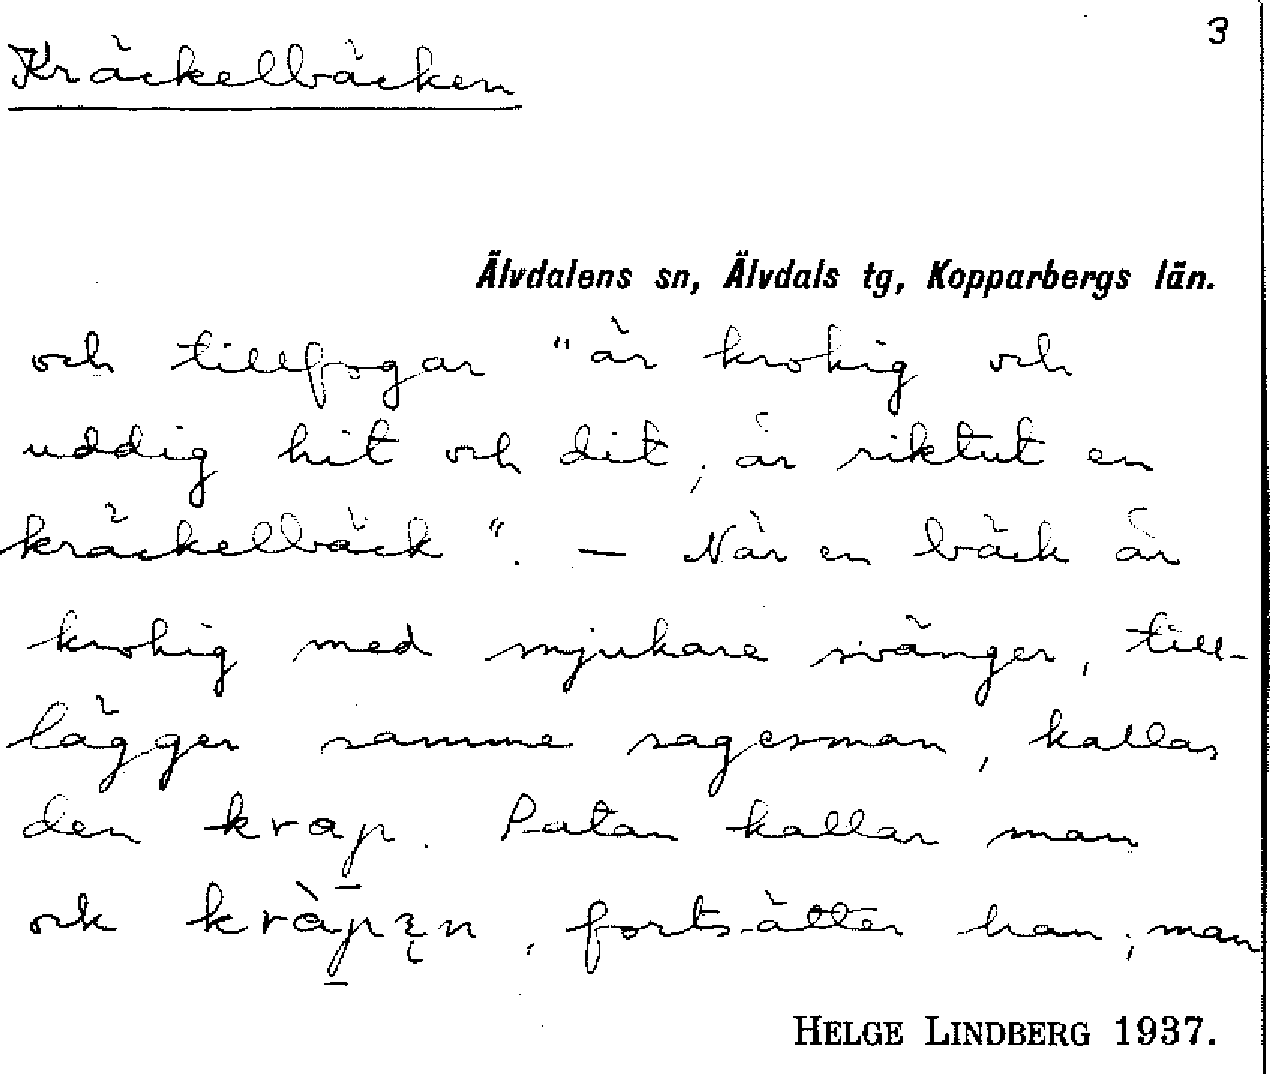 3
Kräckelbäcken
Älvdalens sn, Älvdals tg, Kopparbergs län.
och tillfogar "är krokig och
uddig hit och dit, är riktut en
kräckelbäck". — När en bäck är
krokig med mjukare svänger, till-
lägger samme sagesman, kallas
den krap. Patan kallar man
ock
, fortsätter han; man
HELGE LINDBERG 1937.